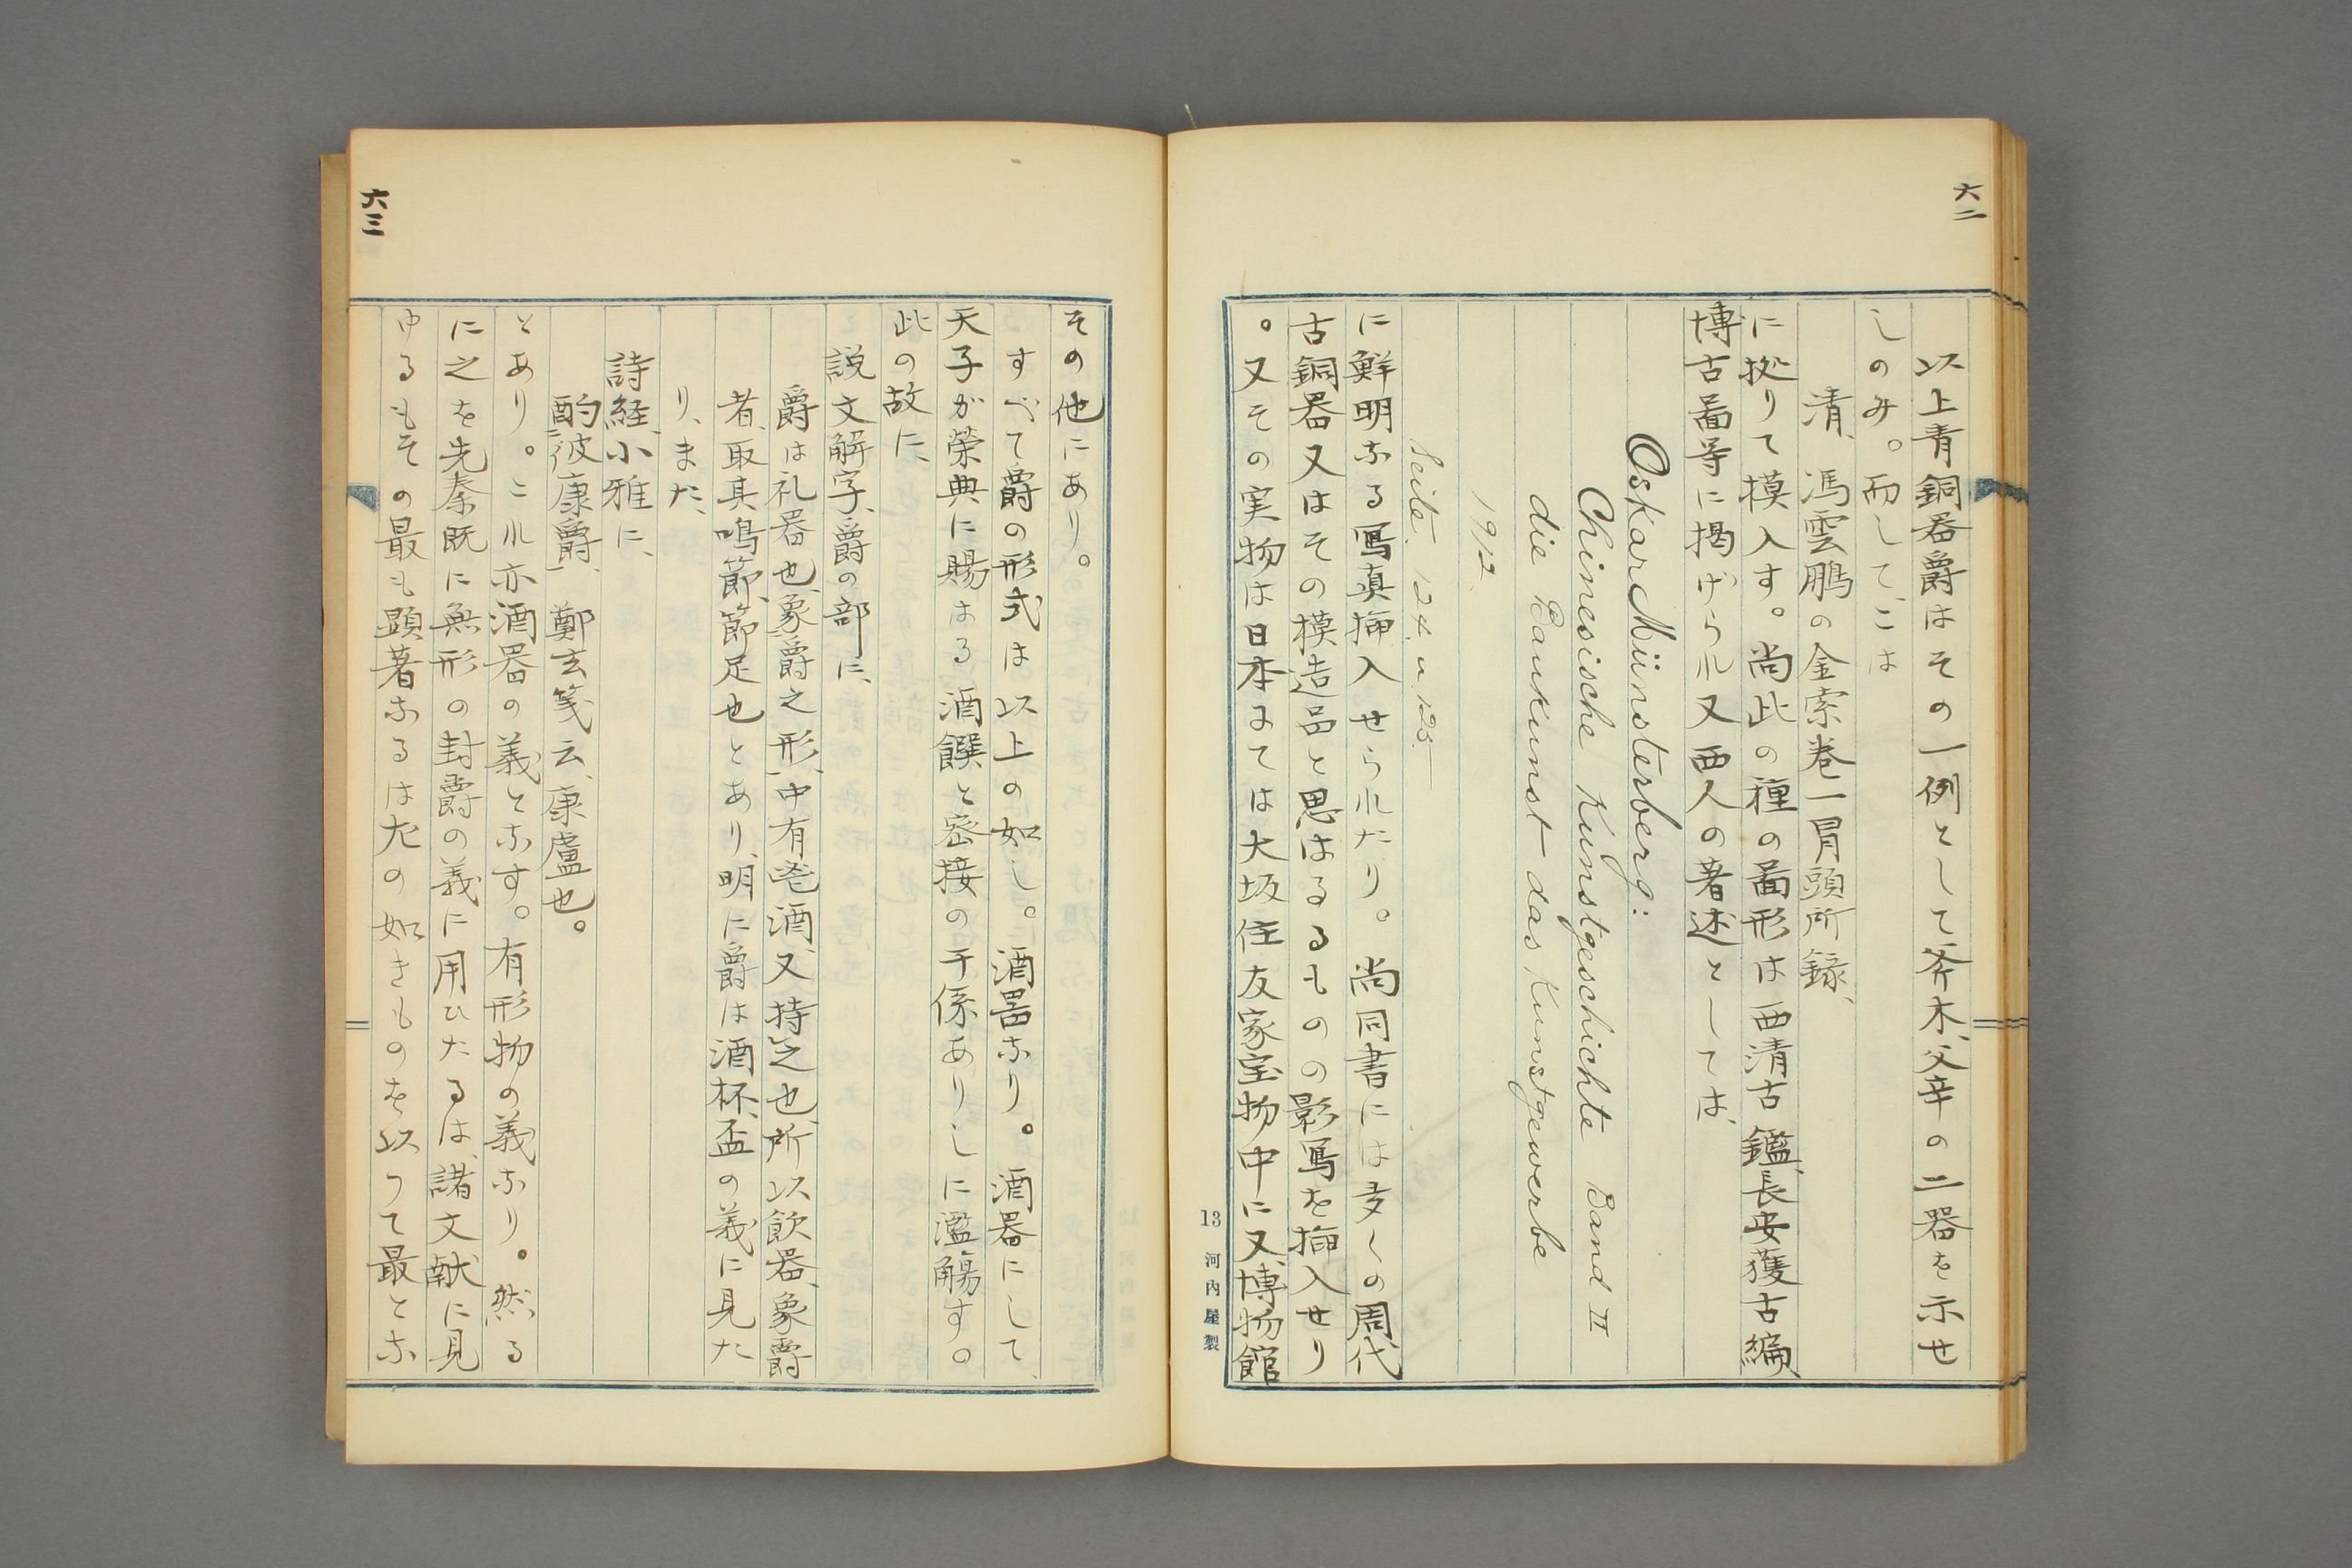 六二
以上青銅器爵はその一例として斧木、父辛の二器を示せ
しのみ。而して、こは
清、馮雲鵬の金索巻一冐頭所録、
に拠りて模入す。尚此の種の啚形は西清古鑑、長安獲古編
博古啚等に掲げられ又西人の著述としては、
Oskar Münsterberg:
Chinesische Kunstgeschichte Band II
die Baukunst das Kunstgewerbe
1912.
Seite. 124 u. 125.
に鮮明なる写真挿入せられたり。尚同書には多くの周代
古銅器又はその模造品と思はるるものの影写を挿入せり
。又その実物は日本にては大坂住友家宝物中に又博物館
13 河内屋製
六三
その他にあり。
すべて爵の形式は以上の如し。酒器なり。酒器にして、
天子が榮典に賜はる酒饌と密接の干係ありしに濫觴す。
此の故に、
説文解字、爵の部に、
爵は礼器也、象爵之形、中有鬯酒、又持之也、所以飲器、象爵
者、取其鳴節、節足也とあり、明に爵は酒杯、盃の義に見た
り、また、
詩経、小雅に、
酌彼康爵、鄭玄箋云、康虚也。
とあり。これ亦酒器の義となす。有形物の義なり。然る
に之を先秦既に無形の封爵の義に用ひたるは、諸文献に見
ゆるもその最も顕著なるは左の如きものを以つて最とな